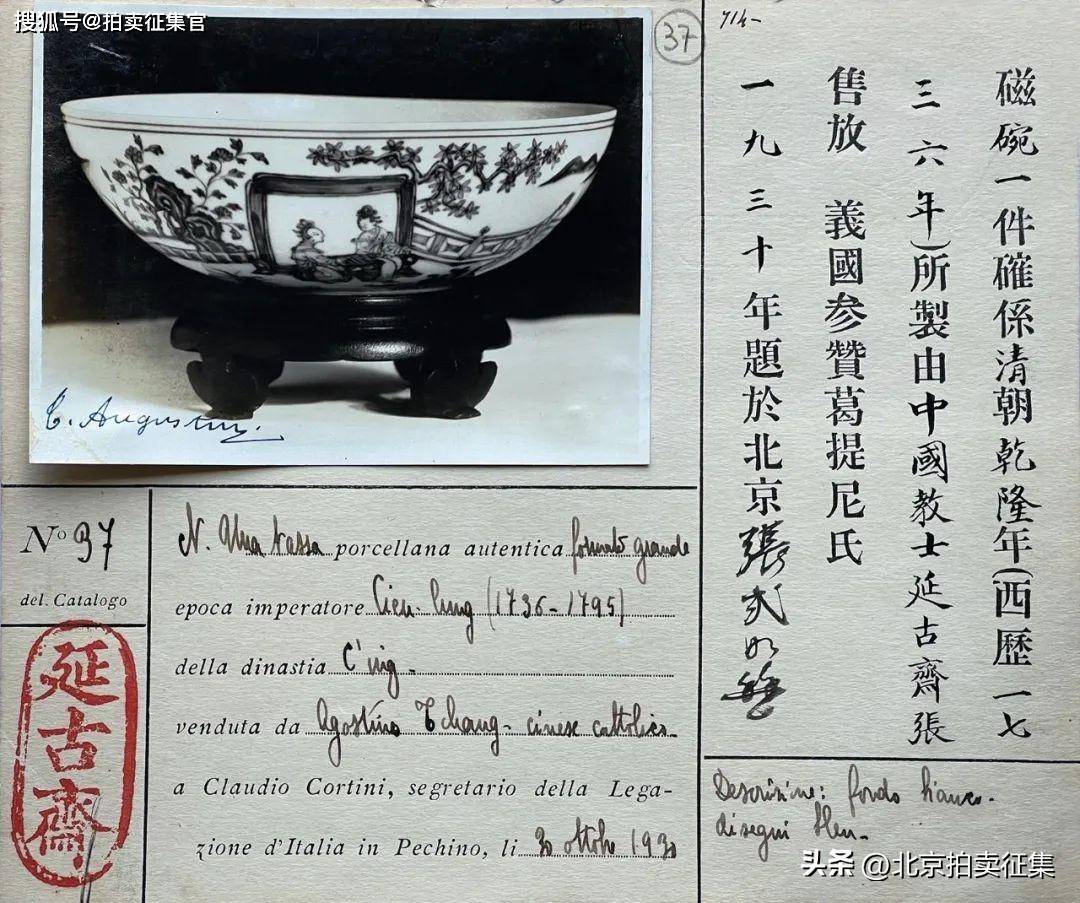 搜狐号@拍卖征集官
37
714-
磁碗一件確係清朝乾隆年(西歷一七
三六年)所製由中國教士延古齋張
售放 義國参贊葛提尼氏
一九三十年題於北京張
Augustin.
Nº 37
del. Catalogo
延古齋
N. Una tassa porcellana autentica formato grande
epoca imperatore Cien-lung (1736-1795)
della dinastia C'ing-
venduta da Agostino Tchang- cinese cattolico-
a Claudio Cortini, segretario della Lega-
zione d'Italia in Pechino, li 30 ottobre 1930
Descrizione: fondo bianco-
disegni bleu-
头条 @北京拍卖征集